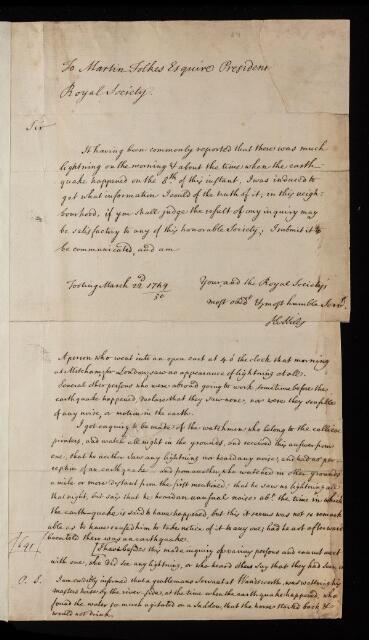 To Martin Folkes Esquire President
Royal Society.
Sir
It having been commonly reported that there was much
lightning on the morning & about the time when the earth-
quake happened on the 8th of this instant, I was induced to
get what information I could of the truth of it, in this neigh-
bourhood, if you shall judge the result of my inquiry may
be satisfactory to any of this honorable Society; I submit it to
be communicated, and am
Tooting March 22d 1749/50
Your, and the Royal Society's
most obedt & most humble Servt.
H Miles
A person who went into an open cart at 4 o' the clock that morning
at Mitcham, for London, saw no appearance of lightning at all.
Several other persons who were abroad going to work sometime before the
earthquake happened, declare that they saw none, nor were they sensible
of any noise, or motion in the earth.
I got enquiry to be made of the watchmen who belong to the callicoe
printers, and watch all night in the grounds, and received this answer from
one, that he neither saw any lightning nor heard any noise, and had no per-
ception of an earthquake and from another, who watched in other grounds
a mile or more distant from the first mentioned; that he saw no lightning all
that night, but says that he heard an unusual noise abt. the time in which
the earthquake is said to have happened, but this it seems was not so remark
able as to have caused him to take notice of it to any one, had he not afterward
been told there was an earthquake.
[I have besides this made inquiry of various persons and can not meet
with one, who did see any lightning, or who heard others say that they had seen
P. S. I am credibly informed that a gentlemans Servant at Wandsworth, was watering his
masters horse by the river-side, at the time when the earthquake happened, who
found the water so much agitated on a sudden, that the horse started back &
would not drink.